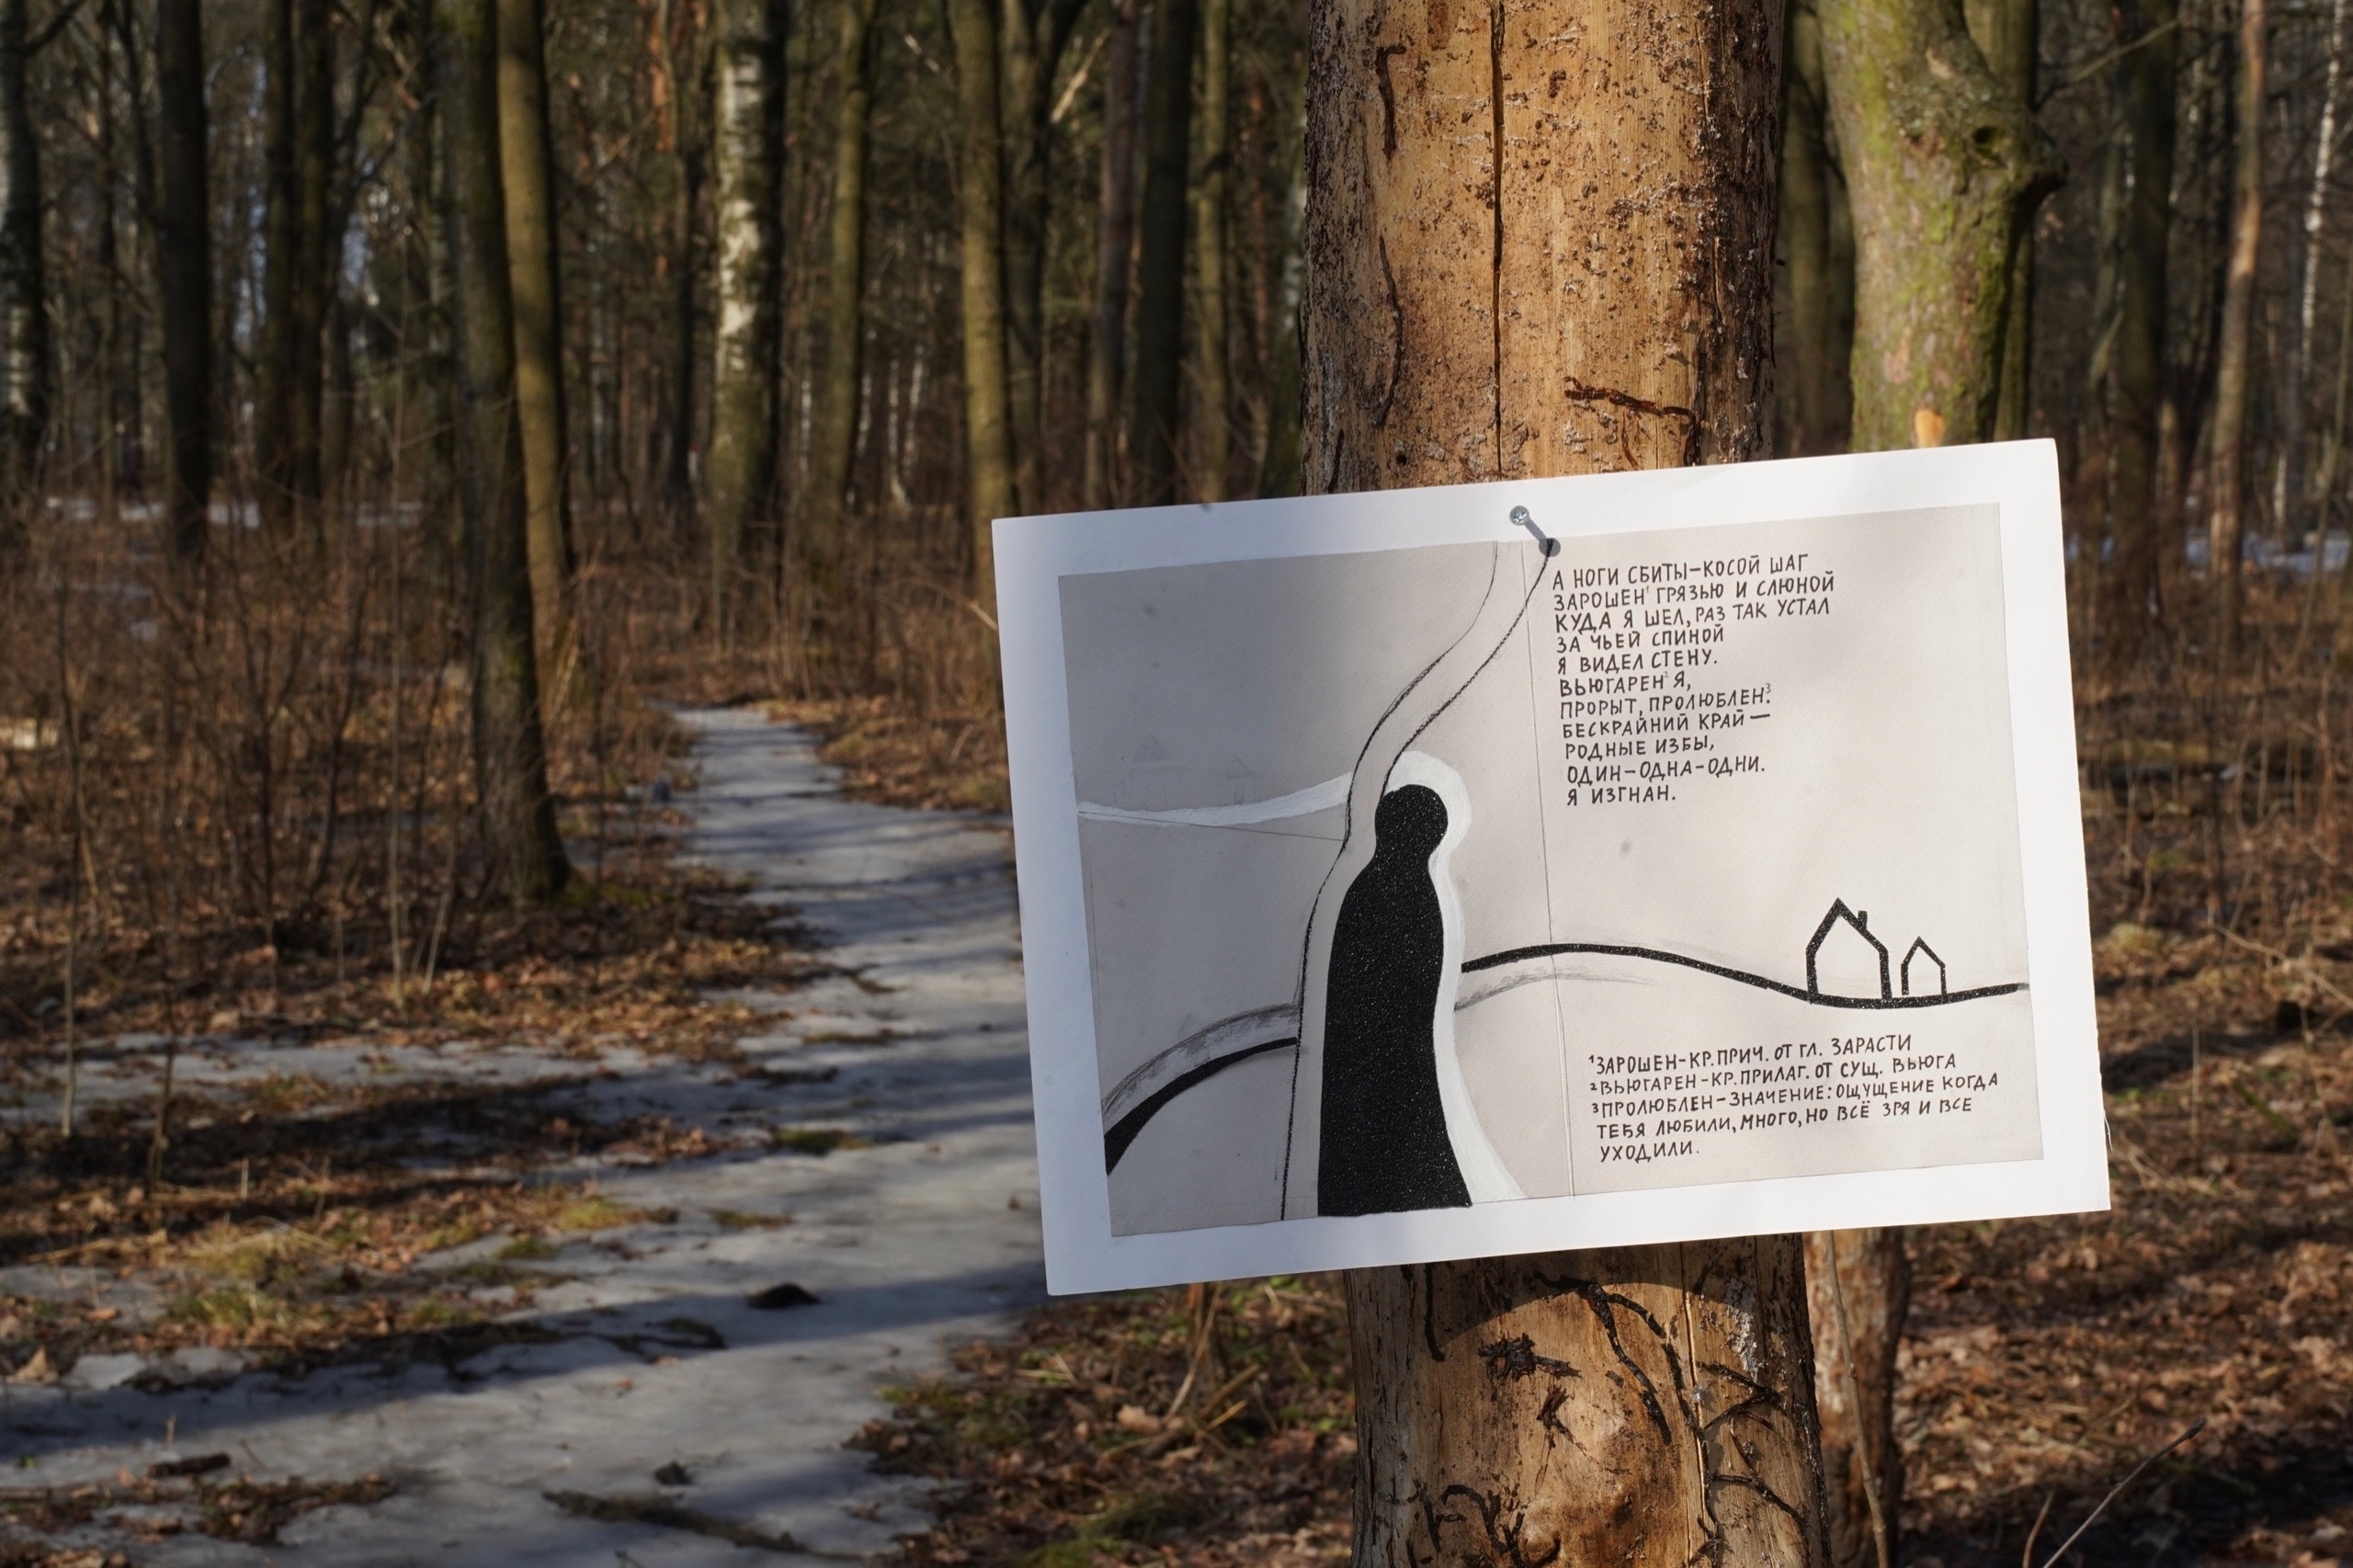 А НОГИ СБИТЫ-КОСОЙ ШАГ
ЗАРОШЕН¹ ГРЯЗЬЮ И СЛЮНОЙ
КУДА Я ШЕЛ, РАЗ ТАК УСТАЛ
ЗА ЧЬЕЙ СПИНОЙ
Я ВИДЕЛ СТЕНУ.
ВЬЮГАРЕН² Я,
ПРОРЫТ, ПРОЛЮБЛЕН³.
БЕСКРАЙНИЙ КРАЙ —
РОДНЫЕ ИЗБЫ,
ОДИН-ОДНА-ОДНИ.
Я ИЗГНАН.
¹ЗАРОШЕН-КР.ПРИЧ. ОТ ГЛ. ЗАРАСТИ
²ВЬЮГАРЕН-КР.ПРИЛАГ. ОТ СУЩ. ВЬЮГА
³ПРОЛЮБЛЕН-ЗНАЧЕНИЕ: ОЩУЩЕНИЕ КОГДА
ТЕБЯ ЛЮБИЛИ, МНОГО, НО ВСЁ ЗРЯ И ВСЕ
УХОДИЛИ.